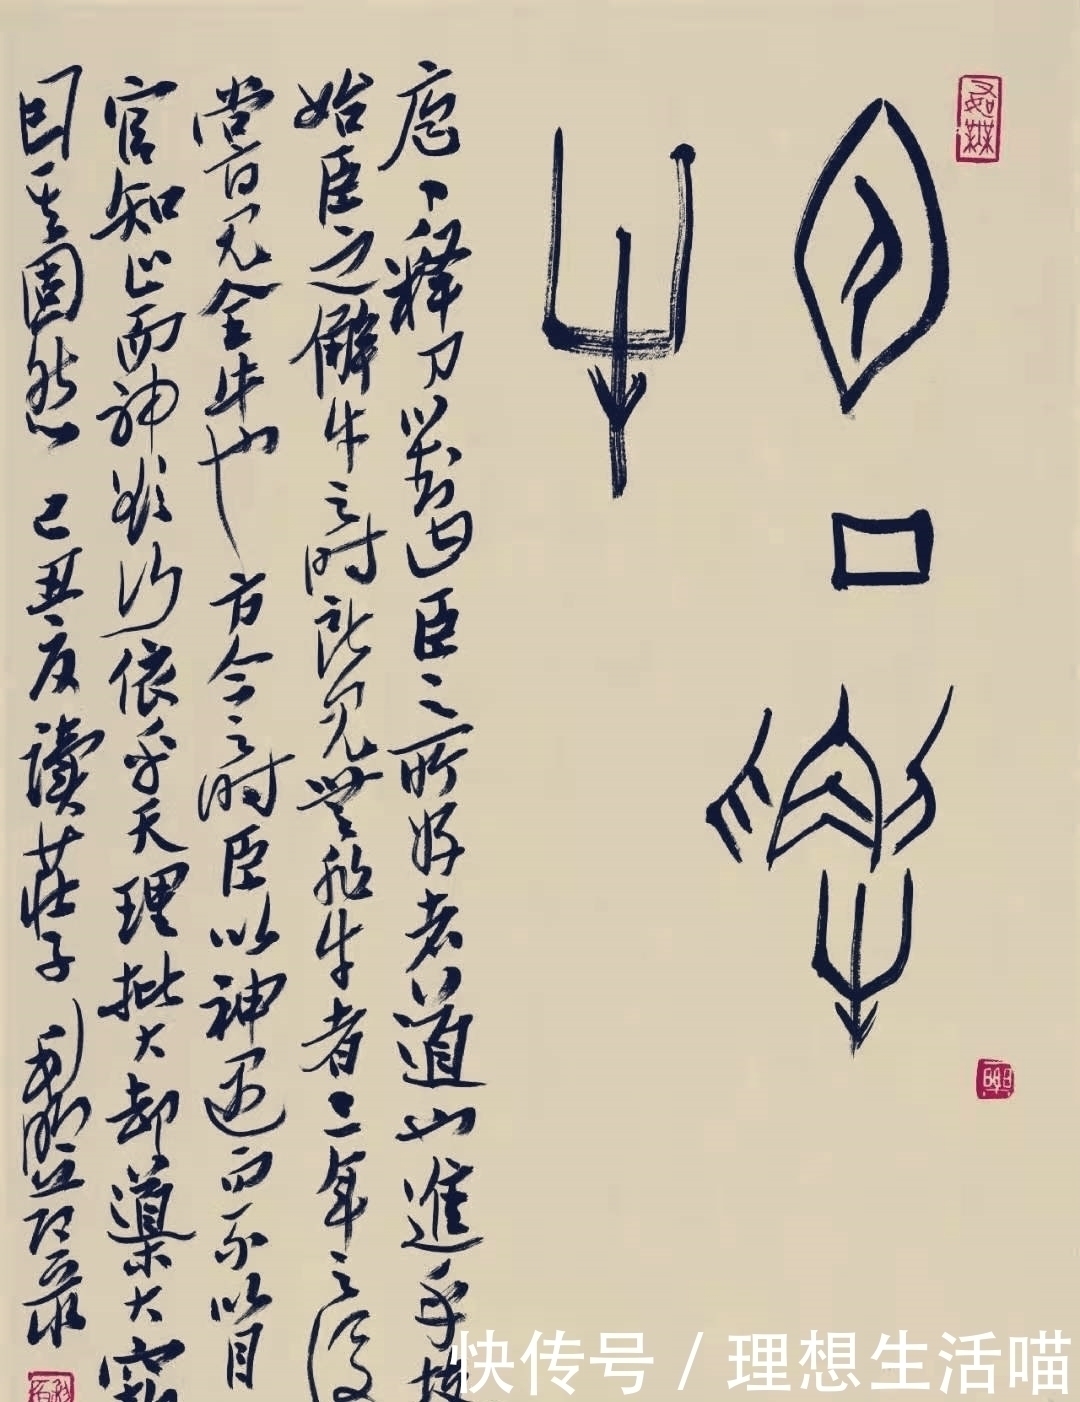 庖丁解
牛
庖丁釋刀以對曰臣之所好者道也進乎技
始臣之解牛之時所見無非牛者三年之後
嘗見全牛也方今之時臣以神遇而不以目
官知止而神欲行依乎天理批大却導大窾
因其固然 己丑夏讀莊子
快传号 / 理想生活喵